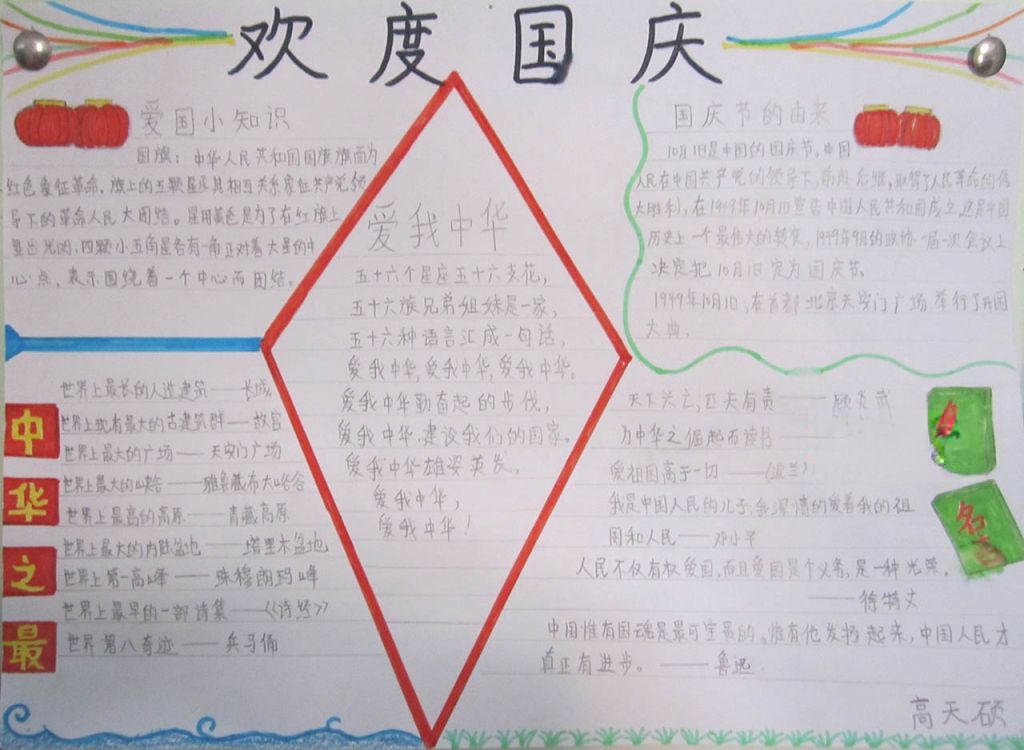 欢度国庆
爱国小知识
国旗：中华人民共和国国旗旗面为
红色象征革命，旗上的五颗星及其相互关系象征共产党领
导下的革命人民大团结。星用黄色是为了在红旗上
显出光明，四颗小五角星各有一角正对着大星的中
心点，表示围绕着一个中心而团结。
爱我中华
五十六个星座五十六支花，
五十六族兄弟姐妹是一家，
五十六种语言汇成一句话，
爱我中华，爱我中华，爱我中华。
爱我中华勤奋起的步伐，
爱我中华，建设我们的国家。
爱我中华雄姿英发，
爱我中华，
爱我中华！
国庆节的由来
10月1日是中国的国庆节，中国
人民在中国共产党的领导下，前赴后继，取得了人民革命的伟
大胜利，在1949年10月1日宣告中国人民共和国成立，这是中国
历史上一个最伟大的转变，1949年9月的政协一届一次会议上
决定把10月1日定为国庆节。
1949年10月1日，在首都北京天安门广场举行了开国
大典.
中华之最
世界上最长的人造建筑——长城.
世界上现有最大的古建筑群——故宫
世界上最大的广场——天安门广场
世界上最大的峡谷——雅鲁藏布大峡谷
世界上最高的高原——青藏高原
世界上最大的内陆盆地——塔里木盆地
世界上第一高峰——珠穆朗玛峰
世界上最早的一部诗集——《诗经》
世界第八奇迹——兵马俑
名
天下兴亡，匹夫有责——顾炎武
为中华之倔起而读书——
爱祖国高于一切——（波兰）
我是中国人民的儿子，我深情的爱着我的祖
国和人民——邓小平
人民不仅有权爱国，而且爱国是个义务，是一种光荣.
——徐特丈
中国惟有国魂是最可宝贵的，惟有他发扬起来，中国人民才
真正有进步。——鲁迅
高天硕